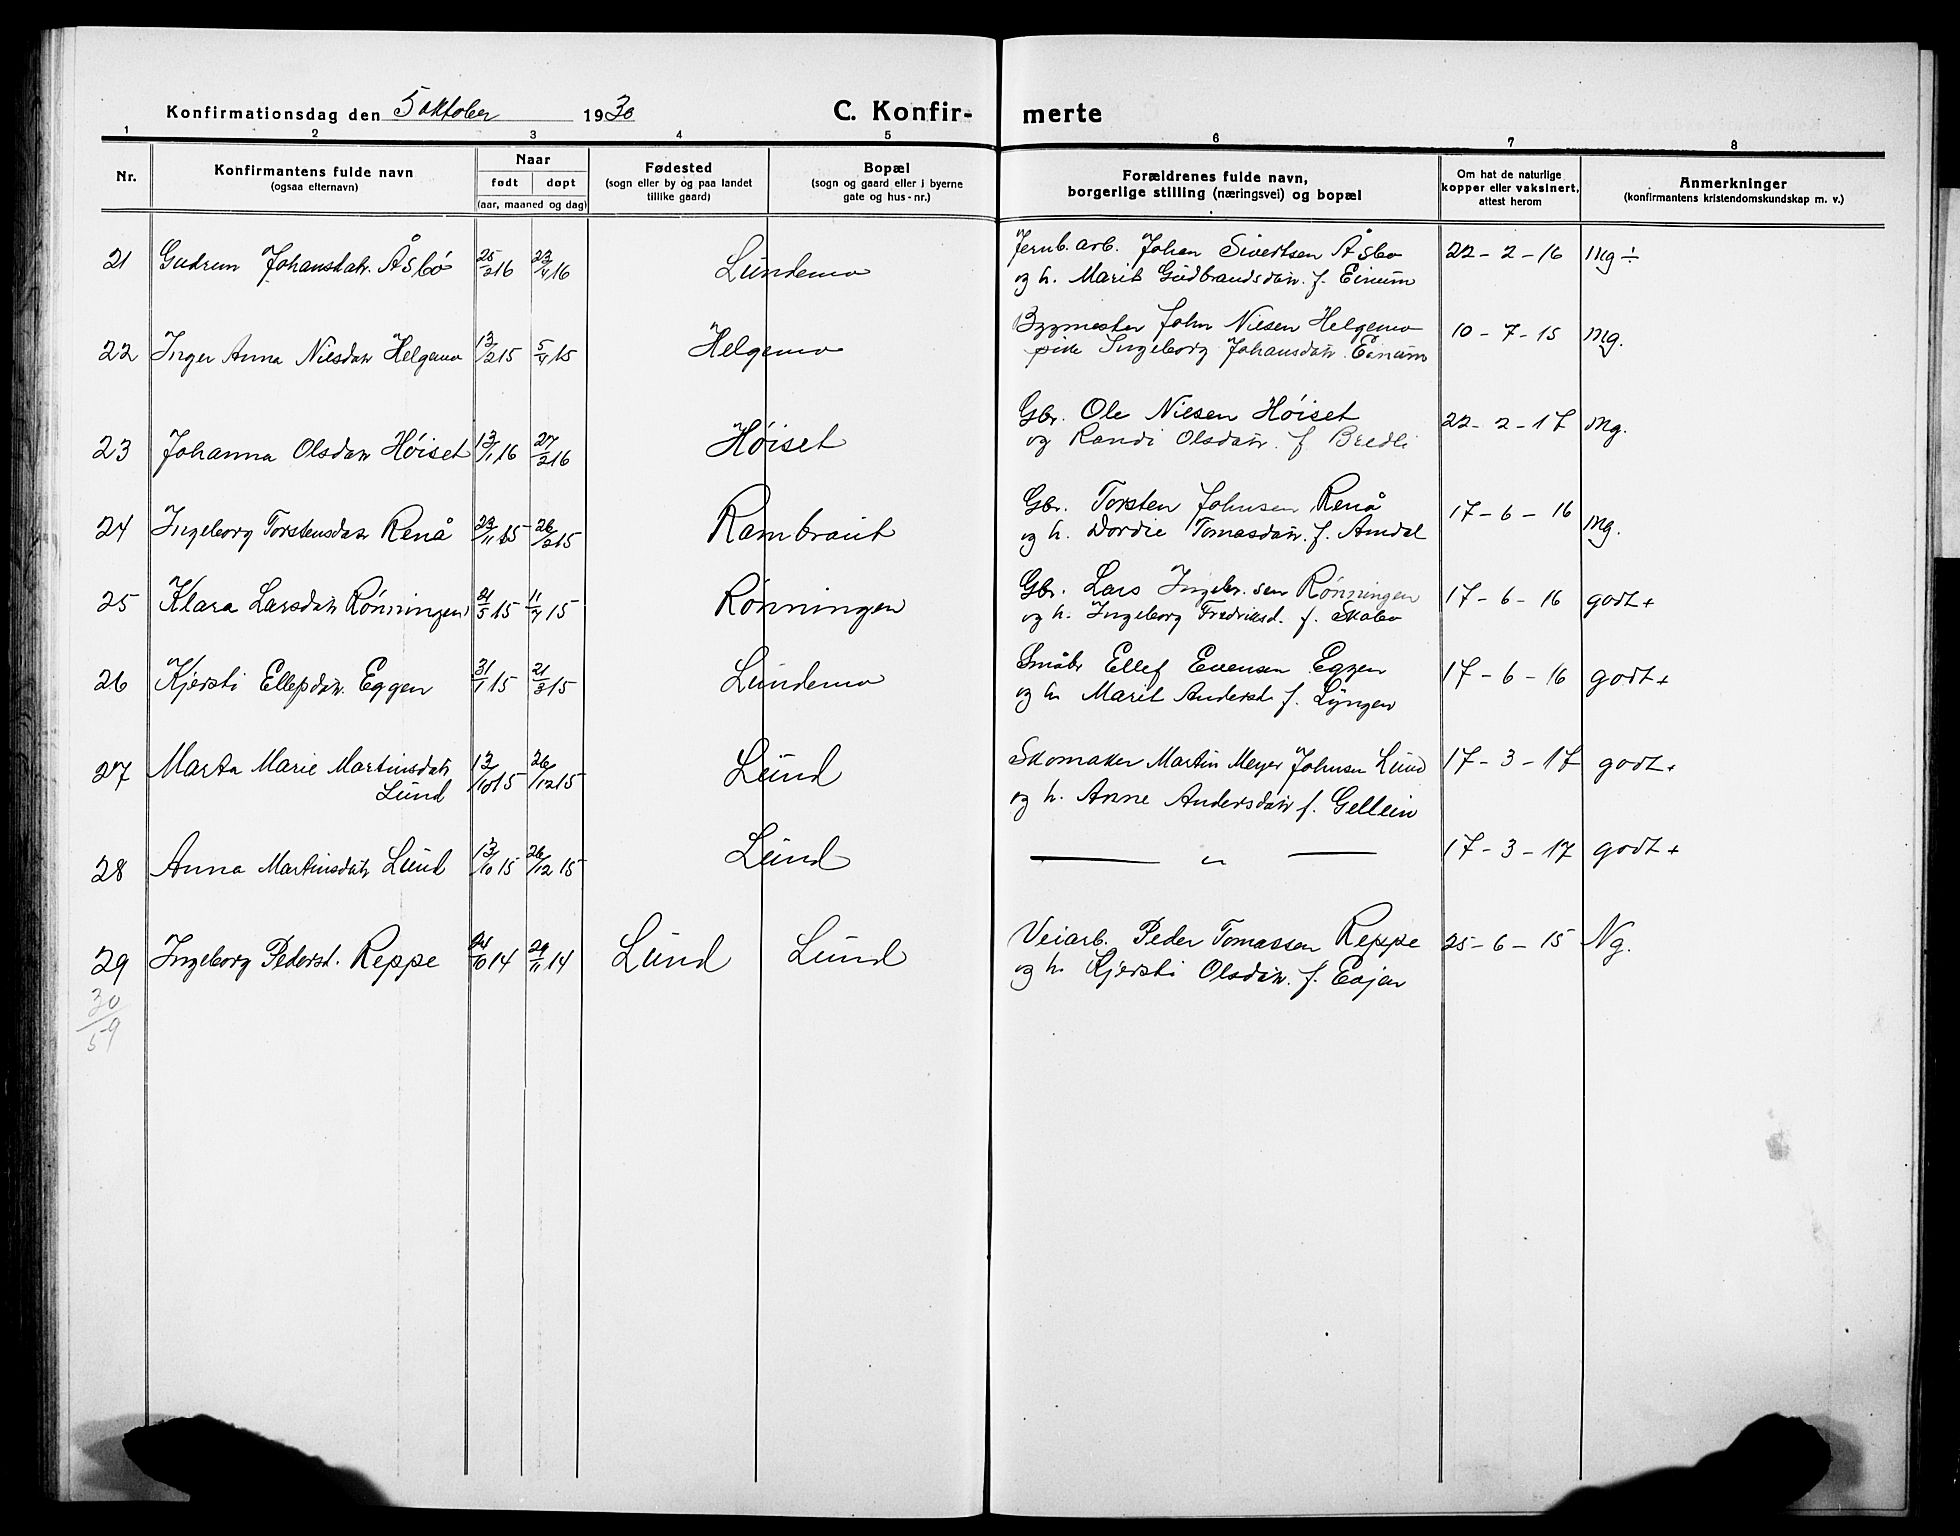 Konfirmationsdag den 5 oktober 1930 C. Konfir- merte
1 2 3 4 5 6 7 8
Nr.
Konfirmantens fulde navn
(ogsaa efternavn)
Naar
født døpt
(aar, maaned og dag)
Fødested
(sogn eller by og paa landet
tillike gaard)
Bopæl
(sogn og gaard eller i byerne
gate og hus-nr.)
Forældrenes fulde navn,
borgerlige stilling (næringsvei) og bopæl
Om hat de naturlige
kopper eller vaksinert,
attest herom
Anmerkninger
(konfirmantens kristendomskundskap m. v.)
21 Gudrun Johansdatr. Åsbø 25/2 16 23/4 16 Lundemo Jernb. arb. Johan Sivertsen Åsbø 22-2-16 Mg ÷
og h. Marit Gudbrandsdatr. f. Einum
22 Inger Anna Nilsdatr Helgemo 13/2 15 5/4 15 Helgemo Byggmester John Nilsen Helgemo 10-7-15 Mg.
pike Ingeborg Johansdatr. Einum
23 Johanna Olsdatr Høiset 13/1 16 27/2 16 Høiset Gbr. Ole Nilsen Høiset 22-2-17 Mg.
og Randi Olsdatr. f. Bredli
24 Ingeborg Torstensdatr Renå 23/11 15 26/2 15 Rambraut Gbr. Torsten Johnsen Renå 17-6-16 Mg.
og h. Dordie Tomasdatr. f. Amdal
25 Klara Larsdatr Rønningen 21/5 15 11/7 15 Rønningen Gbr. Lars Ingebr.sen Rønningen 17-6-16 godt+
og h. Ingeborg Fredriksd. f. Skobo
26 Kjersti Ellefsdatr. Eggen 31/1 15 21/3 15 Lundemo Småbr Ellef Evensen Eggen 17-6-16 godt+
og h. Marit Andersd. f. Lyngen
27 Marta Marie Martinsdatr 13/10 15 26/12 15 Lund Skomaker Martin Meyer Johnsen Lund 17-3-17 godt+
Lund
og h. Anne Andersdatr f. Gellein
28 Anna Martinsdatr Lund 13/10 15 26/12 15 Lund — " — 17-3-17 godt+
29 Ingeborg Pedersd. Reppe /10 14 29/11 14 Lund Lund Veiarb. Peder Tomassen Reppe 25-6-15 Ng.
og h. Kjersti Olsdatr. f.
30
59